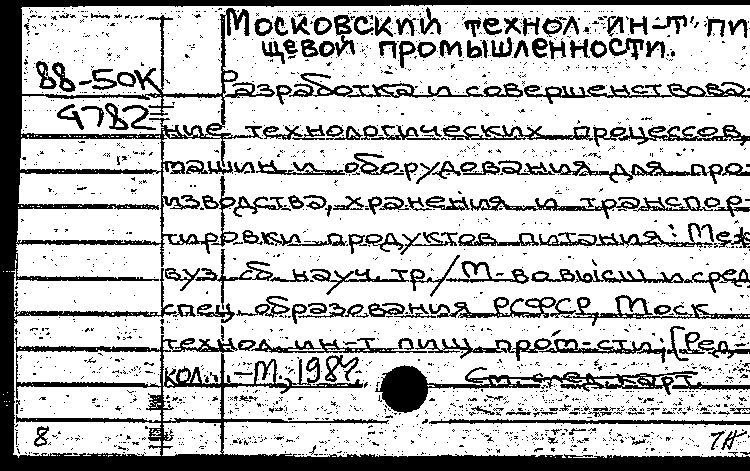 Московский технол. ин-т пи
щевой промышленности.
88-50К
Разработка и совершенствова-
9782
ние технологических процессов,
машин и оборудования для про-
изводства, хранения и транспор-
тировки продуктов питания: Меж
вуз. сб. науч. тр./М-во высш и сред
спец. образования РСФСР, Моск
технол. ин-т пищ. пром-сти; [Ред-
кол... -М., 1987.
См. след. карт.
8